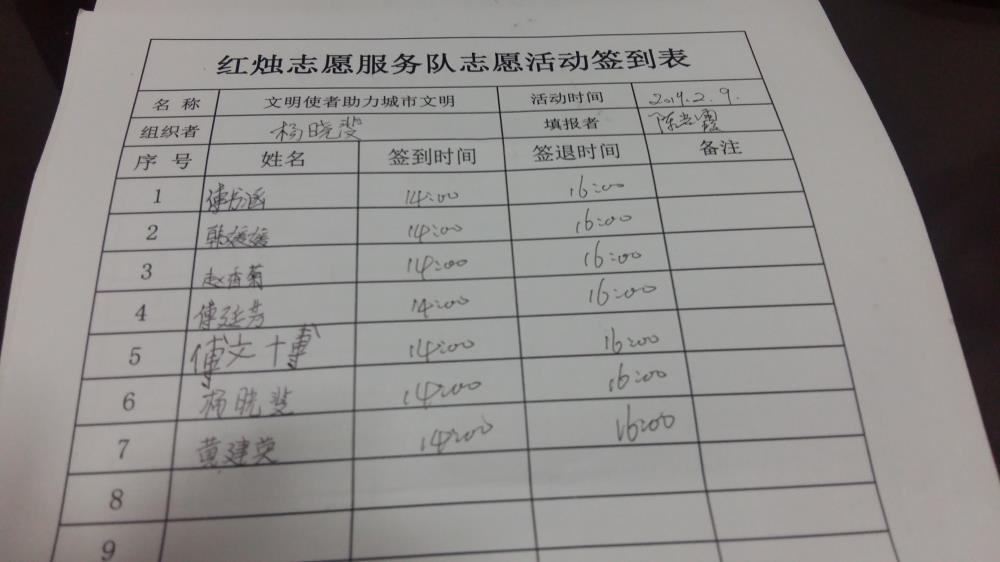 红烛志愿服务队志愿活动签到表
名 称 文明使者助力城市文明 活动时间 2019.2.9.
组织者 杨晓斐 填报者 陈
序 号 姓名 签到时间 签退时间 备注
1 傅 涵 14:00 16:00
2 韩媛媛 14:00 16:00
3 赵香菊 14:00 16:00
4 傅廷芳 14:00 16:00
5 傅文博 14:00 16:00
6 杨晓斐 14:00 16:00
7 黄建英 14:00 16:00
8
9